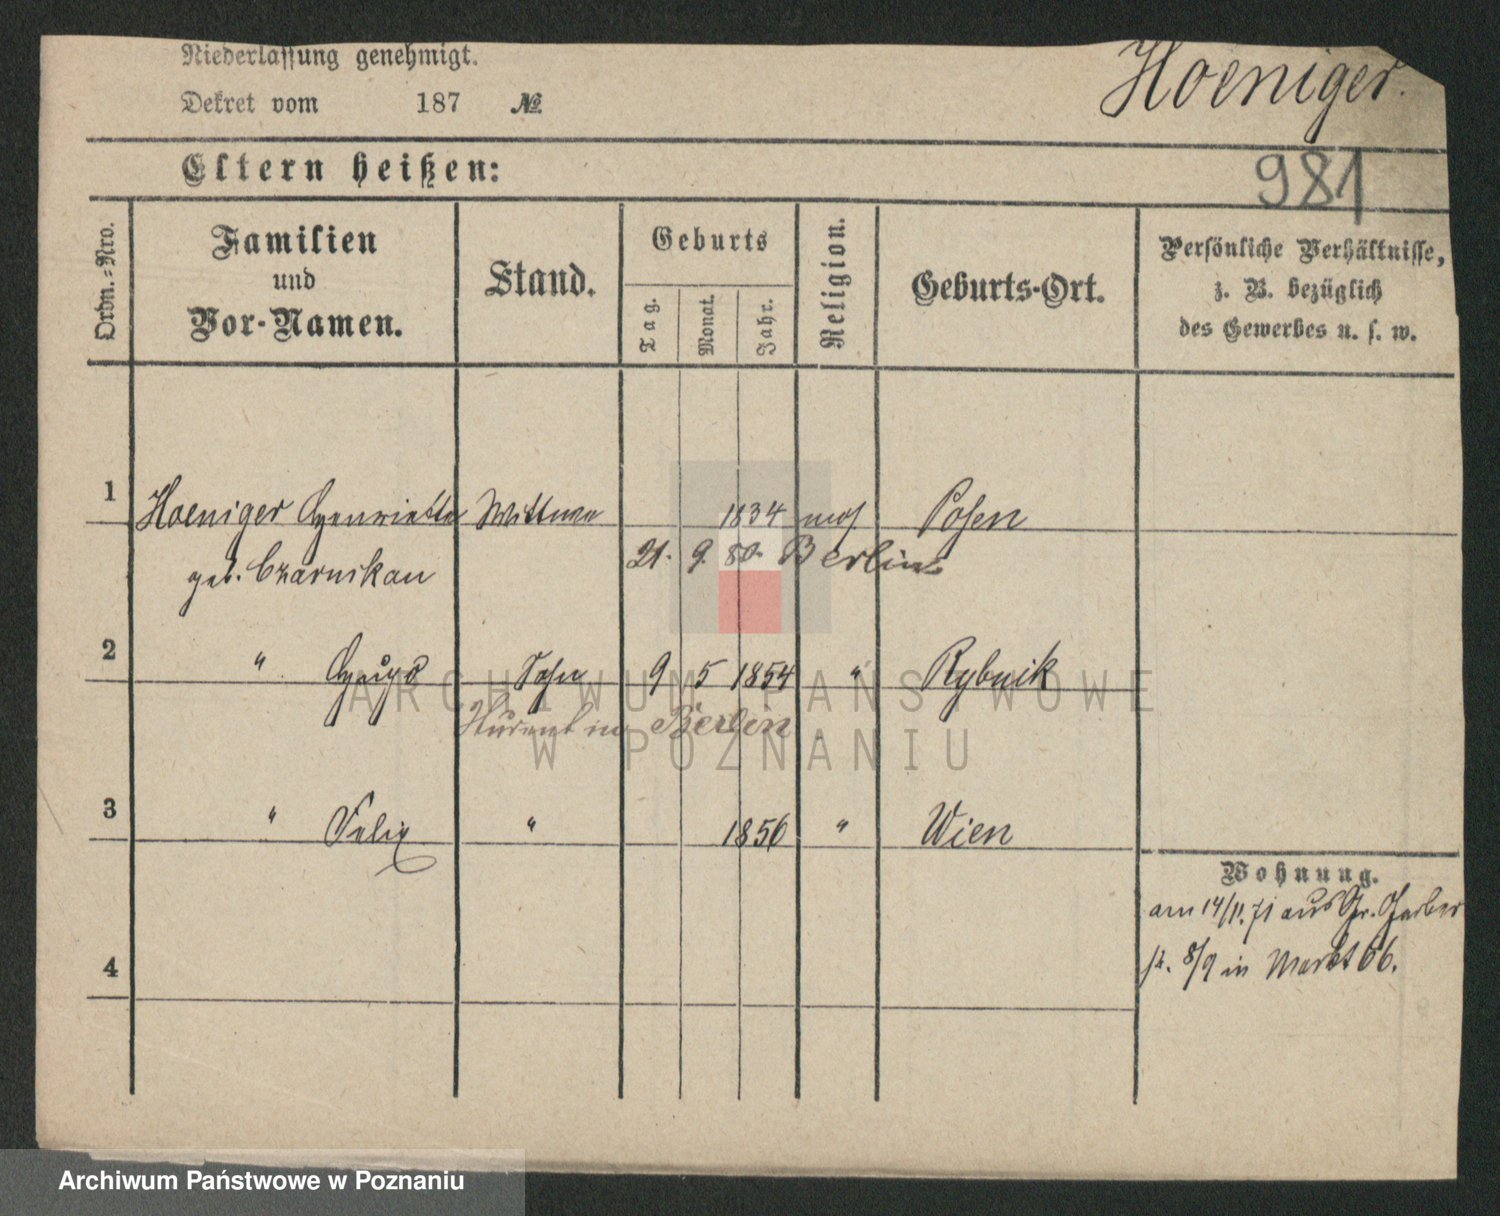 Niederlassung genehmigt.
Dekret vom 187 №
Hoeniger.
981
Eltern heißen:
Ordn.-Nro.
Familien und Vor-Namen.
Stand.
Geburts
Tag. Monat. Jahr.
Religion.
Geburts-Ort.
Persönliche Verhältnisse,
z. B. bezüglich
des Gewerbes u. s. w.
1 Hoeniger Henriette Wittwe 1834 mos Posen
geb. Czarnikau 21. 9. 80. Berlin
2 " Hugo Sohn 9 5 1854 " Rybnik
Student in Berlin
3 " Felix " 1856 " Wien
Wohnung.
am 14/11.71 aus Gr. Gerber
st. 8/9 in Markt 66.
4
ARCHIWUM PAŃSTWOWE
W POZNANIU
Archiwum Państwowe w Poznaniu